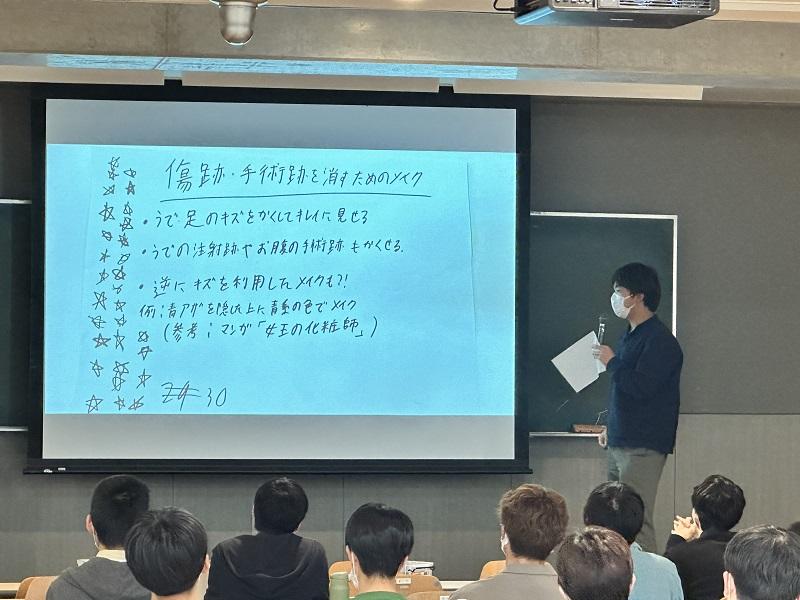 傷跡・手術跡を消すためのメイク
・うで、足のキズをかくしてキレイに見せる
・うでの注射跡やお腹の手術跡もかくせる.
・逆にキズを利用したメイクも?!
例;青アザを隠した上に青重の色でメイク
(参考;マンガ「女王の化粧師」)
30